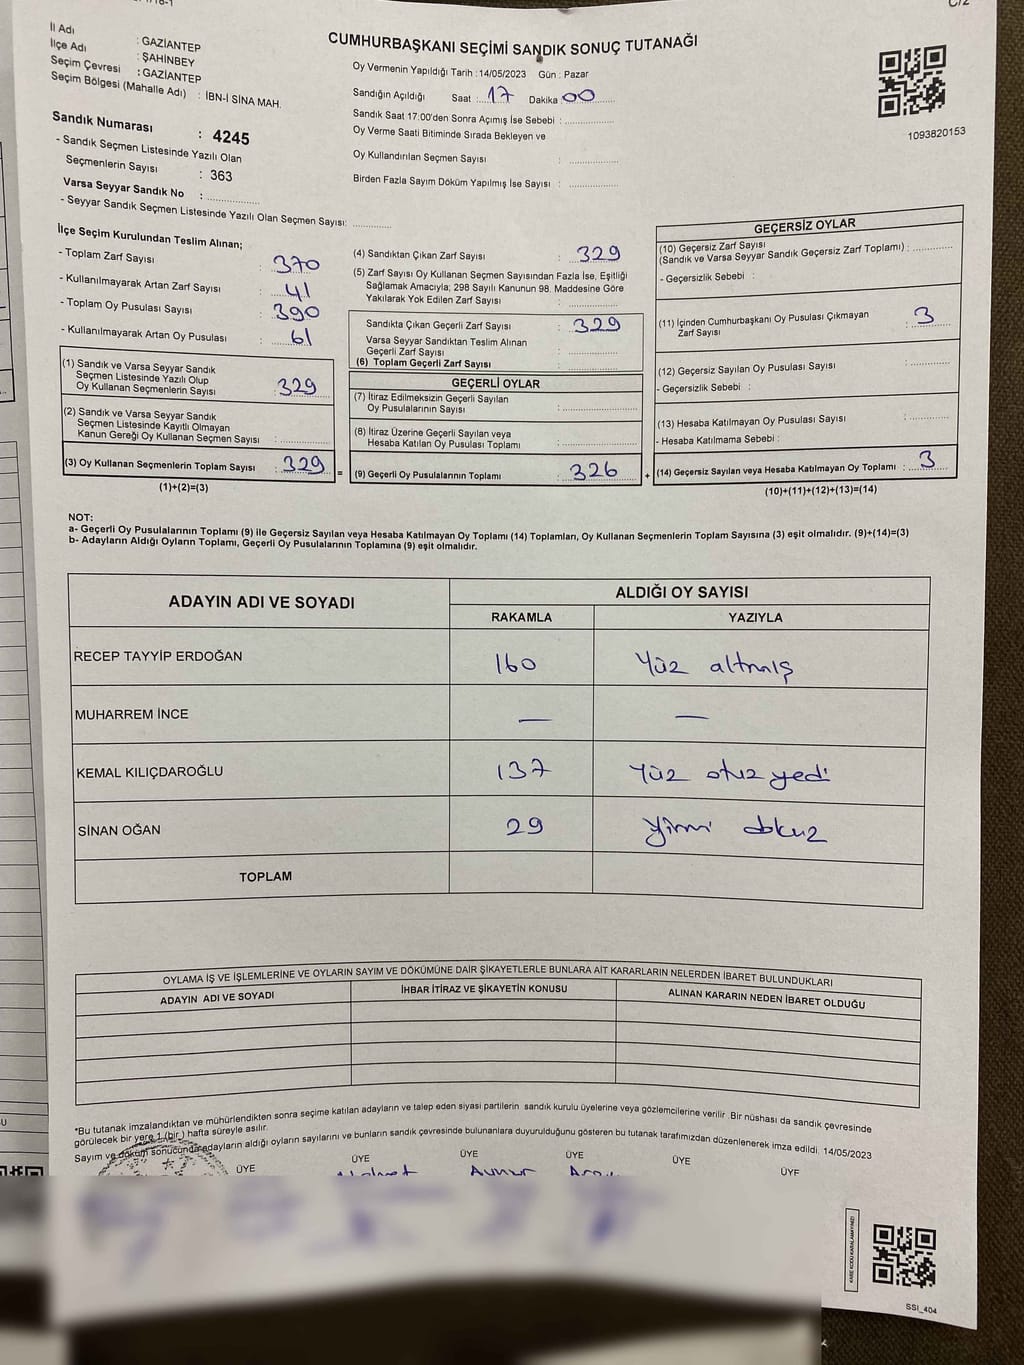 İl Adı : GAZİANTEP
İlçe Adı : ŞAHİNBEY
Seçim Çevresi : GAZİANTEP
Seçim Bölgesi (Mahalle Adı) : İBN-İ SİNA MAH.
Sandık Numarası : 4245
- Sandık Seçmen Listesinde Yazılı Olan
Seçmenlerin Sayısı : 363
Varsa Seyyar Sandık No :
- Seyyar Sandık Seçmen Listesinde Yazılı Olan Seçmen Sayısı:
CUMHURBAŞKANI SEÇİMİ SANDIK SONUÇ TUTANAĞI
Oy Vermenin Yapıldığı Tarih :14/05/2023 Gün : Pazar
Sandığın Açıldığı Saat : 17 Dakika : 00
Sandık Saat 17:00'den Sonra Açımış İse Sebebi :
Oy Verme Saati Bitiminde Sırada Bekleyen ve
Oy Kullandırılan Seçmen Sayısı :
Birden Fazla Sayım Döküm Yapılmış İse Sayısı :
1093820153
İlçe Seçim Kurulundan Teslim Alınan;
- Toplam Zarf Sayısı : 370
- Kullanılmayarak Artan Zarf Sayısı : 41
- Toplam Oy Pusulası Sayısı : 390
- Kullanılmayarak Artan Oy Pusulası : 61
(1) Sandık ve Varsa Seyyar Sandık
Seçmen Listesinde Yazılı Olup
Oy Kullanan Seçmenlerin Sayısı : 329
(2) Sandık ve Varsa Seyyar Sandık
Seçmen Listesinde Kayıtlı Olmayan
Kanun Gereği Oy Kullanan Seçmen Sayısı :
(3) Oy Kullanan Seçmenlerin Toplam Sayısı : 329
(1)+(2)=(3)
(4) Sandıktan Çıkan Zarf Sayısı : 329
(5) Zarf Sayısı Oy Kullanan Seçmen Sayısından Fazla İse, Eşitliği
Sağlamak Amacıyla; 298 Sayılı Kanunun 98. Maddesine Göre
Yakılarak Yok Edilen Zarf Sayısı :
Sandıkta Çıkan Geçerli Zarf Sayısı : 329
Varsa Seyyar Sandıktan Teslim Alınan
Geçerli Zarf Sayısı :
(6) Toplam Geçerli Zarf Sayısı :
GEÇERLİ OYLAR
(7) İtiraz Edilmeksizin Geçerli Sayılan
Oy Pusulalarının Sayısı :
(8) İtiraz Üzerine Geçerli Sayılan veya
Hesaba Katılan Oy Pusulası Toplamı :
= (9) Geçerli Oy Pusulalarının Toplamı : 326
GEÇERSİZ OYLAR
(10) Geçersiz Zarf Sayısı
(Sandık ve Varsa Seyyar Sandık Geçersiz Zarf Toplamı) :
- Geçersizlik Sebebi :
(11) İçinden Cumhurbaşkanı Oy Pusulası Çıkmayan
Zarf Sayısı : 3
(12) Geçersiz Sayılan Oy Pusulası Sayısı :
- Geçersizlik Sebebi :
(13) Hesaba Katılmayan Oy Pusulası Sayısı :
- Hesaba Katılmama Sebebi :
+ (14) Geçersiz Sayılan veya Hesaba Katılmayan Oy Toplamı : 3
(10)+(11)+(12)+(13)=(14)
NOT:
a- Geçerli Oy Pusulalarının Toplamı (9) ile Geçersiz Sayılan veya Hesaba Katılmayan Oy Toplamı (14) Toplamları, Oy Kullanan Seçmenlerin Toplam Sayısına (3) eşit olmalıdır. (9)+(14)=(3)
b- Adayların Aldığı Oyların Toplamı, Geçerli Oy Pusulalarının Toplamına (9) eşit olmalıdır.
ADAYIN ADI VE SOYADI ALDIĞI OY SAYISI
RAKAMLA YAZIYLA
RECEP TAYYİP ERDOĞAN 160 Yüz altmış
MUHARREM İNCE — —
KEMAL KILIÇDAROĞLU 137 Yüz otuz yedi
SİNAN OĞAN 29 yirmi dokuz
TOPLAM
OYLAMA İŞ VE İŞLEMLERİNE VE OYLARIN SAYIM VE DÖKÜMÜNE DAİR ŞİKAYETLERLE BUNLARA AİT KARARLARIN NELERDEN İBARET BULUNDUKLARI
ADAYIN ADI VE SOYADI İHBAR İTİRAZ VE ŞİKAYETİN KONUSU ALINAN KARARIN NEDEN İBARET OLDUĞU
*Bu tutanak imzalandıktan ve mühürlendikten sonra seçime katılan adayların ve talep eden siyasi partilerin sandık kurulu üyelerine veya gözlemcilerine verilir. Bir nüshası da sandık çevresinde
görülecek bir yere 1 (bir) hafta süreyle asılır.
Sayım ve döküm sonucunda adayların aldığı oyların sayılarını ve bunların sandık çevresinde bulunanlara duyurulduğunu gösteren bu tutanak tarafımızdan düzenlenerek imza edildi. 14/05/2023
ÜYE ÜYE ÜYE ÜYE ÜYE ÜYE
Aynur
KARE KODU KARALAMAYINIZ!
SSI_404